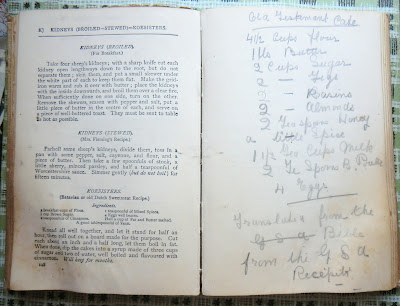 KIDNEYS (BROILED—STEWED)—KOESISTERS.
KIDNEYS (BROILED).
(For Breakfast.)
Take four sheep's kidneys; with a sharp knife cut each
kidney open lengthways down to the root, but do not
separate them; skin them, and put a small skewer under
the white part of each to keep them flat. Make the grid-
iron warm and rub it over with butter; place the kidneys
with the inside downwards, and broil them over a clear fire.
When sufficiently done on one side, turn on the other.
Remove the skewers, season with pepper and salt, put a
little piece of butter in the centre of each, and serve on a
piece of well-buttered toast. They must be sent to table
as hot as possible.
KIDNEYS (STEWED).
(Mrs. Fleming's Recipe.)
Parboil some sheep's kidneys, divide them, toss in a
pan with some pepper, salt, cayenne, and flour, and a
piece of butter. Then take a few spoonfuls of stock, a
little sherry, minced parsley, and half a teaspoonful of
Worcestershire sauce. Simmer gently (but do not boil) for
fifteen minutes.
KOESISTERS.
(Batavian or old Dutch Sweetmeat Recipe.)
Ingredients.
4 breakfast-cups of Flour.
1 cup Brown Sugar.
1 teaspoonful of Mixed Spices.
4 Eggs well beaten.
Half a cup of Fat and Butter melted.
Knead all well together, and let it stand for half an
hour, then roll out on a board made for the purpose. Cut
each about an inch and a half long, let them boil in fat.
When done, dip the cakes into a syrup made of three cups
of sugar and two of water, well boiled and flavoured with
cinnamon. Will keep for months.
128
Old Testament Cake
4 1/2 Cups flour
1 lb Butter
2 Cups Sugar
2 — Figs
2 — Raisins
2 — Almonds
2 Tespons Honey
a Spice
1 1/2 Cups Milk
2 Te Spons B
4 Eggs
Translate from the
Bible
from the